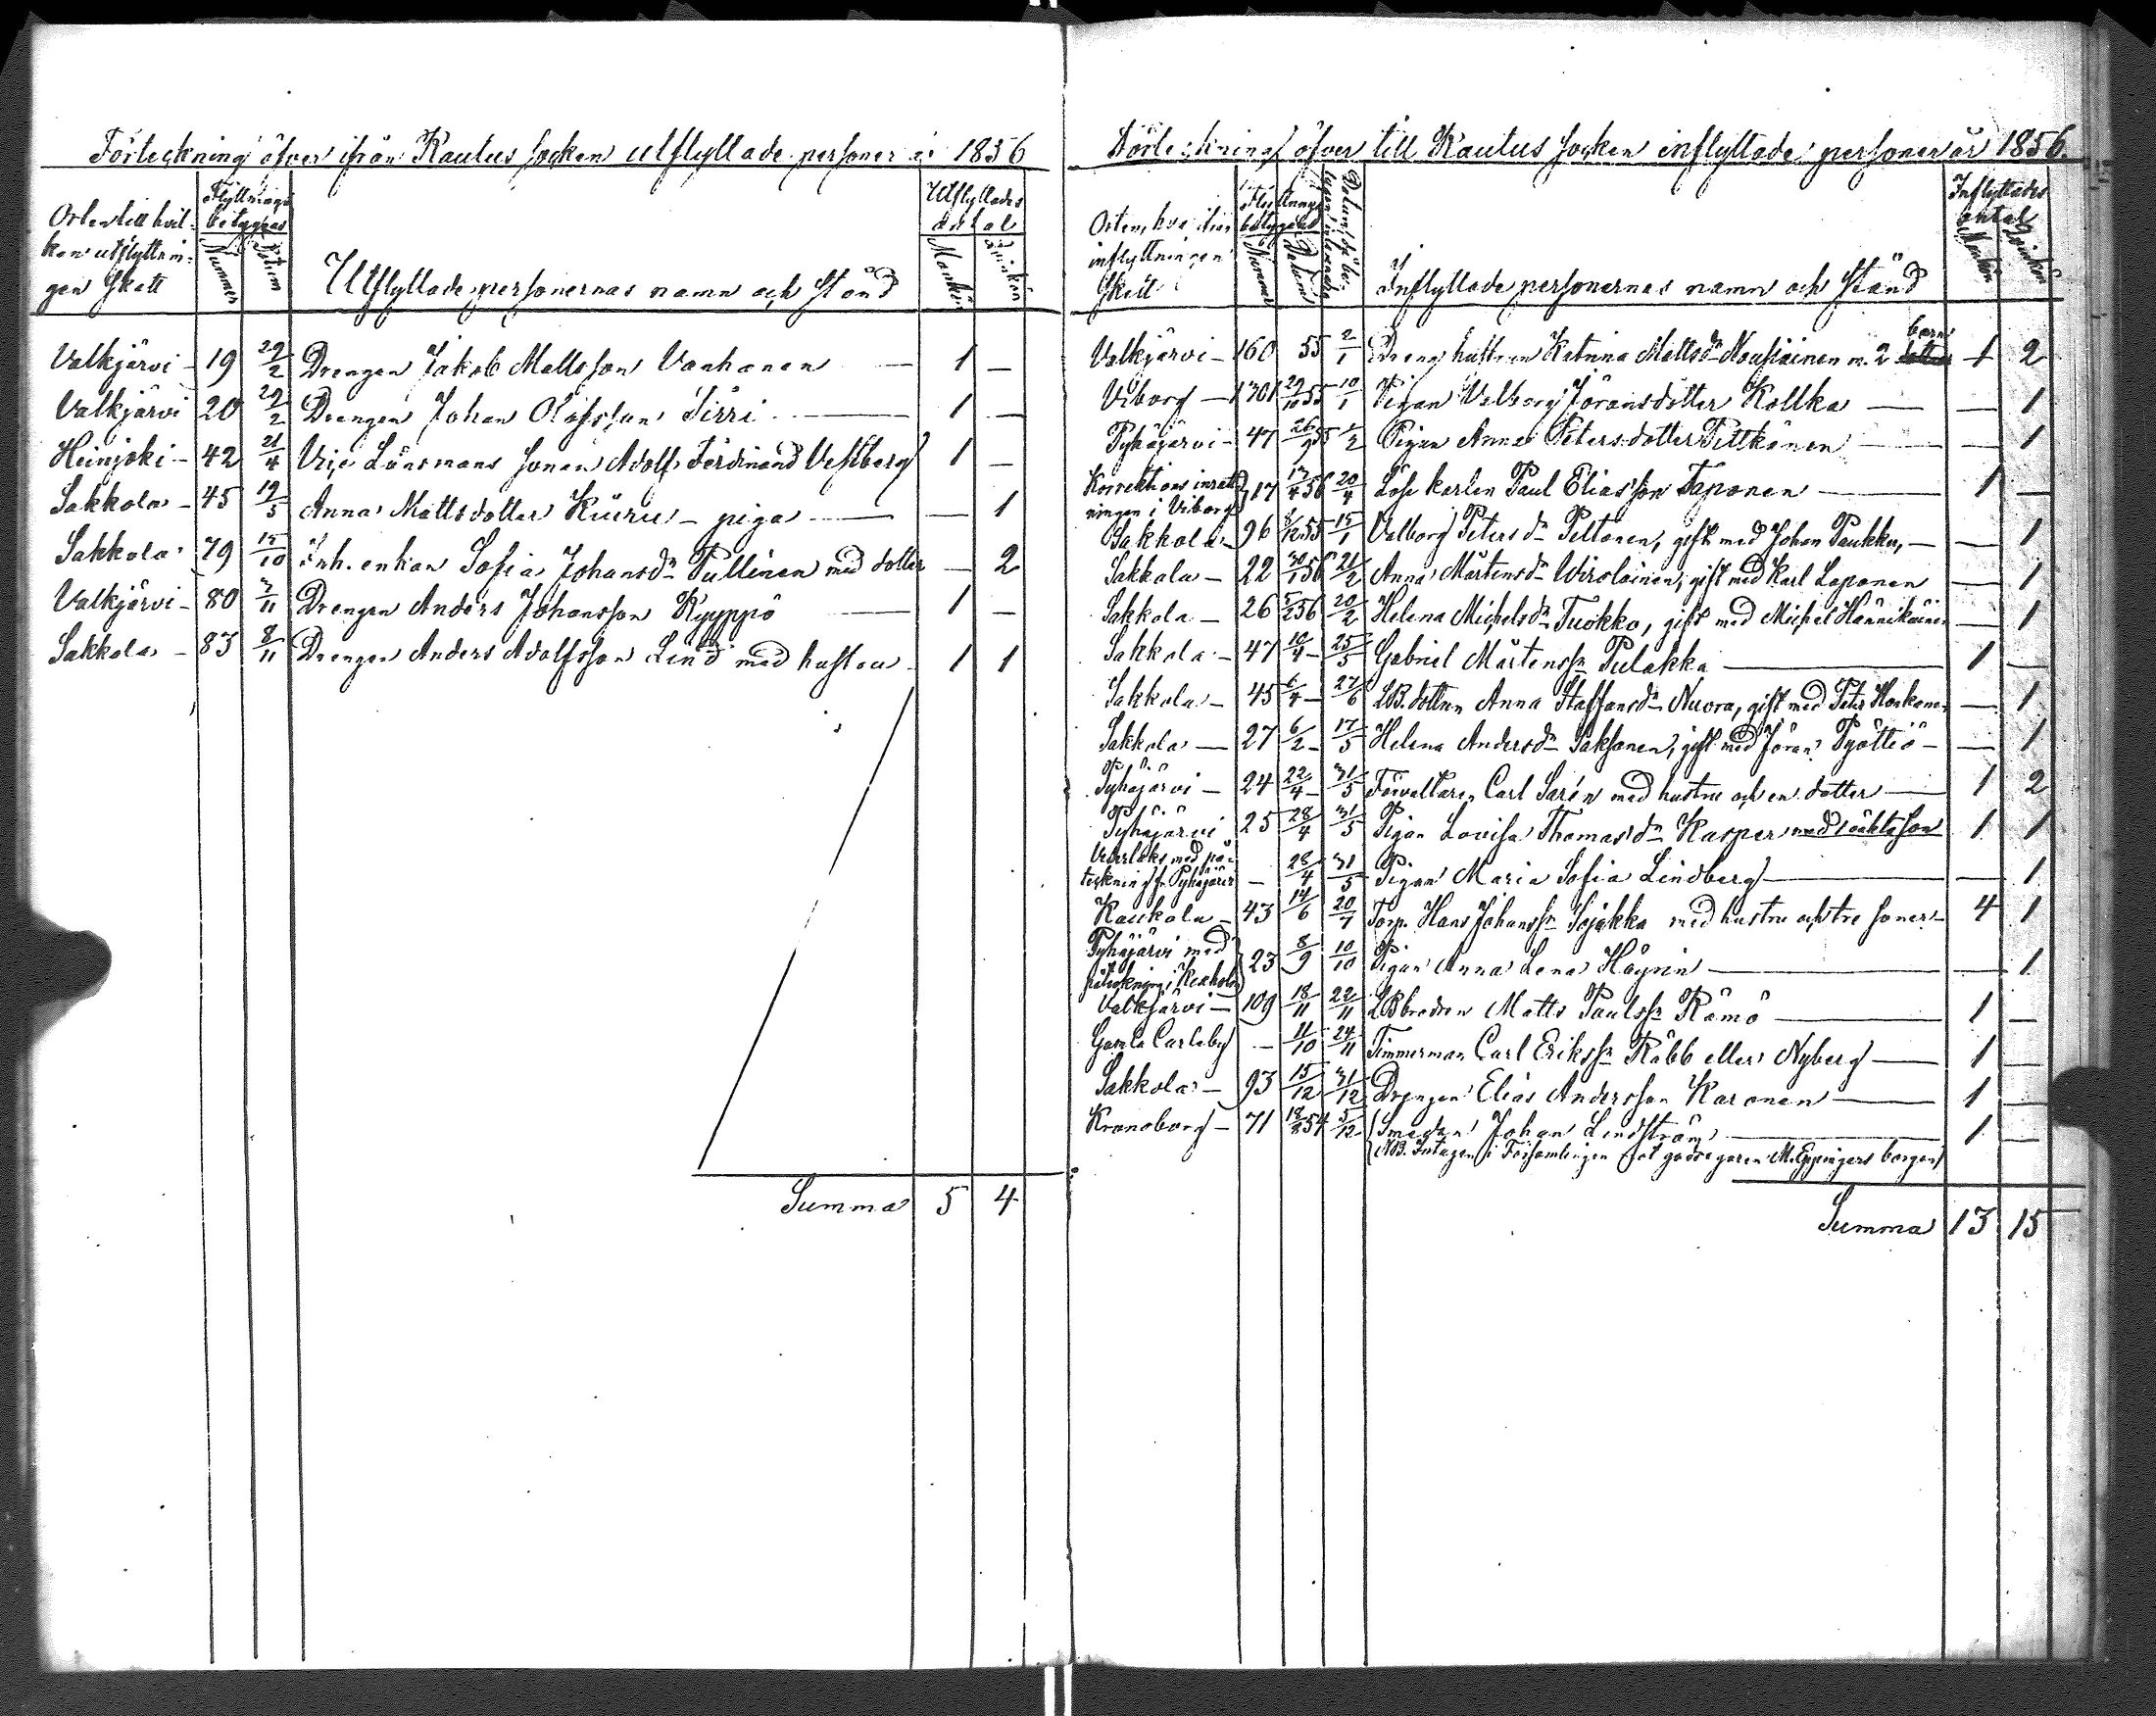 Förteckning öfver ifrån Rautus socken utflyttade personer år 1856
Orten till hvil-
ken utflyttnin-
gen skett
Flyttnings
betygens
Nummer
Datum
Utflyttade personernas namn och stånd
Utflyttades
antal
Mankön
Qvinkön
Valkjärvi - 19 29/2 Drengen Jakob Mattsson Vanhanen — 1 —
Valkjärvi 20 29/2 Drengen Johan Olofsson Sirri — 1 —
Heinjoki - 42 21/4 Vice Länsmans sonen Adolf Ferdinand Vestberg 1 —
Sakkola - 45 19/5 Anna Mattsdotter Kiuru - piga — — 1
Sakkola 79 15/10 Inh. enkan Sofia Johansdr Pullinen med dotter — 2
Valkjärvi - 80 3/11 Drengen Anders Johansson Kyyppö — 1 —
Sakkola - 83 8/11 Drengen Anders Adolfsson Lind med hustru - 1 1
Summa 5 4
Förteckning öfver till Rautus socken inflyttade personer år 1856.
Orten, hvarifrån
inflyttningen
skett
Flyttnings
betygens
Nummer
Datum
Datum, då be-
tygen inlemnades
Inflyttade personernas namn och stånd
Inflyttades
antal
Mankön
Qvinkön
barn
Valkjärvi - 160 55 2/1 Dreng hustrun Katrina Mattsdr Nousiainen m. 2 1 2
Viborg - 1301 29/10 55 10/1 Pigan Valborg Jöransdotter Kollka — — 1
Pyhäjärvi - 47 26/9 55 1/2 Pigan Anna Petersdotter Pittkänen — — 1
Korrektions inrätt-
ningen i Viborg } 17 17/4 56 20/4 Löse karlen Paul Eliasson Taponen — 1 —
Sakkola - 96 8/12 55 15/1 Valborg Petersdr Peltonen, gift med Johan Paukku, — — 1
Sakkola - 22 30/1 56 21/2 Anna Mårtensdr Wirolainen, gift med Karl Laponen — 1
Sakkola - 26 5/2 56 20/2 Helena Michelsdr Tuokko, gift med Michel Hännikäinen — 1
Sakkola - 47 10/4 - 25/5 Gabriel Mårtenssn Pulakka — 1 —
Sakkola - 45 6/4 - 27/6 LB. dottren Anna Staffansdr Nuora, gift med Petr Honkanen — 1
Sakkola — 27 6/2 - 17/5 Helena Andersdr Saksanen, gift med Jöran Pyöttiö - — 1
Pyhäjärvi - 24 22/4 - 31/5 Förvaltaren Carl Sarén med hustru och en dotter — 1 2
Pyhäjärvi 25 28/4 31/5 Pigan Lovisa Thomasdr Kasper med oäkta son 1 1
Vederlaks, med på-
teckning fr. Pyhäjärvi - 28/4 31/5 Pigan Maria Sofia Lindberg — — 1
Kaukola - 43 14/6 20/7 Torp. Hans Johanssn Sojakka med hustru och tre söner - 4 1
Pyhäjärvi med
påteckning i Kexholm } 23 8/9 10/10 Pigan Anna Lena Häyrin — — 1
Valkjärvi - 109 18/11 22/11 LB brodren Matts Paulssn Rämö — 1 —
Gamla Carleby - 11/10 24/11 Timmerman Carl Erikssn Rabb eller Nyberg — 1 —
Sakkola - 93 15/12 31/12 Drengen Elias Andersson Karonen — 1 —
Kronoborg - 71 18/8 54 5/12 Smeden Johan Lindström — 1 —
NB. Intagen i Församlingen på godsegaren M. Eppingers borgen
Summa 13 15